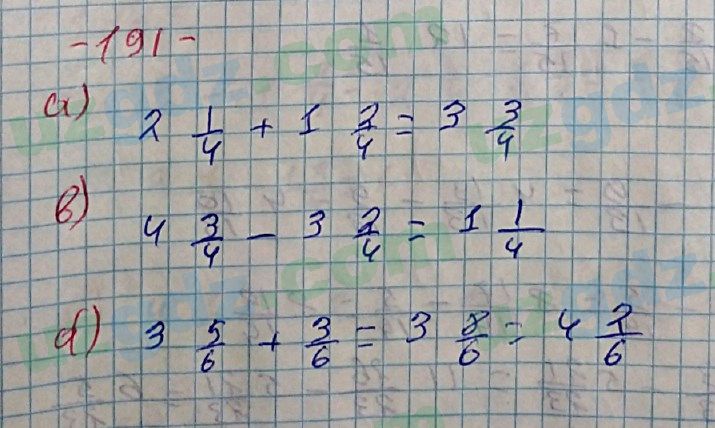 -191-
a) 2 1/4 + 1 2/4 = 3 3/4
b) 4 3/4 - 3 2/4 = 1 1/4
d) 3 5/6 + 3/6 = 3 8/6 = 4 2/6
uzgdz.com